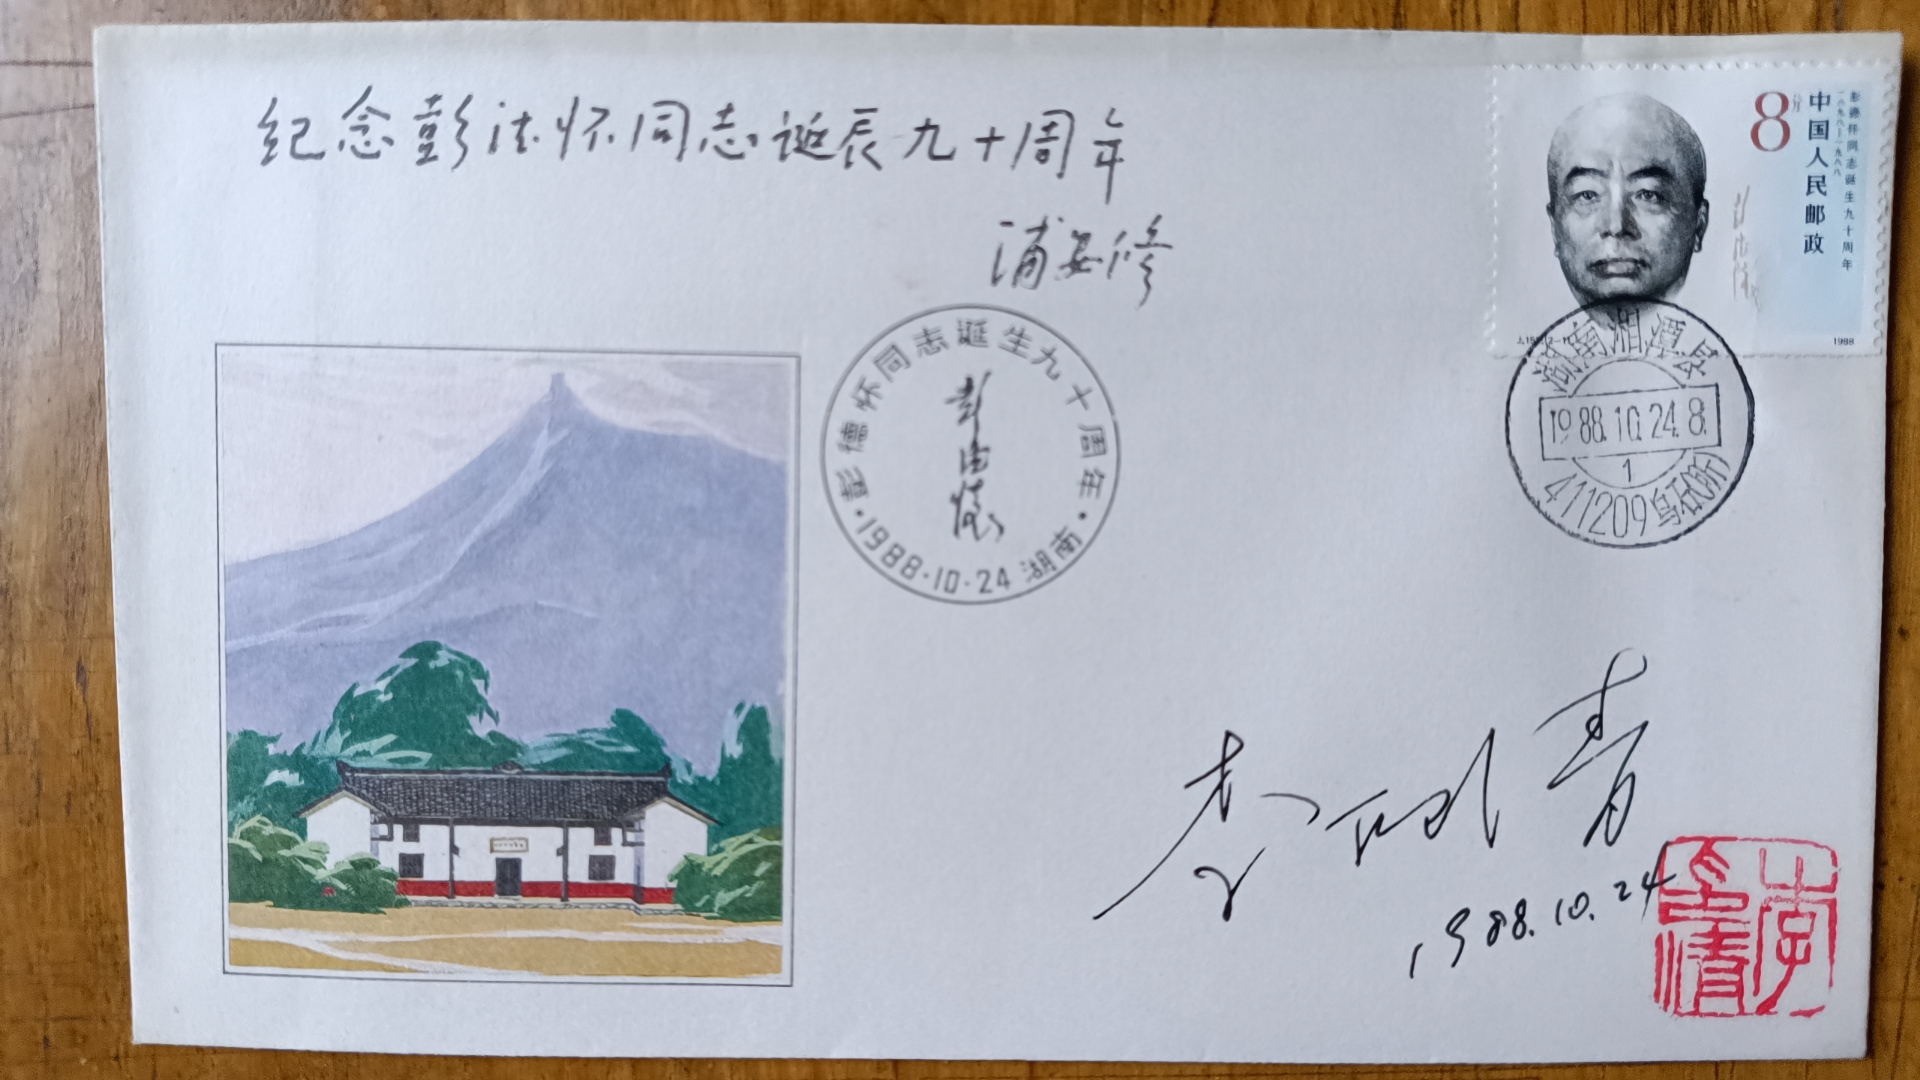 纪念彭德怀同志诞辰九十周年
浦安修
8分
中国人民邮政
彭德怀同志诞生九十周年
一八九八—一九八八
J.155.(2-1)
1988
彭德怀同志诞生九十周年
彭德怀
1988·10·24 湖南
湖南湘潭县
1988.10.24.8.
1
411209 乌石(所)
1988.10.24